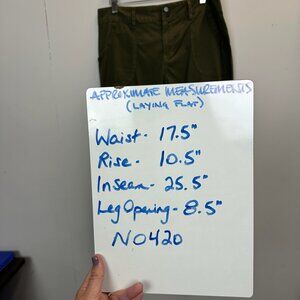 APPROXIMATE MEASUREMENTS
(LAYING FLAT)
Waist - 17.5"
Rise - 10.5"
Inseam - 25.5"
Leg Opening - 8.5"
NO420